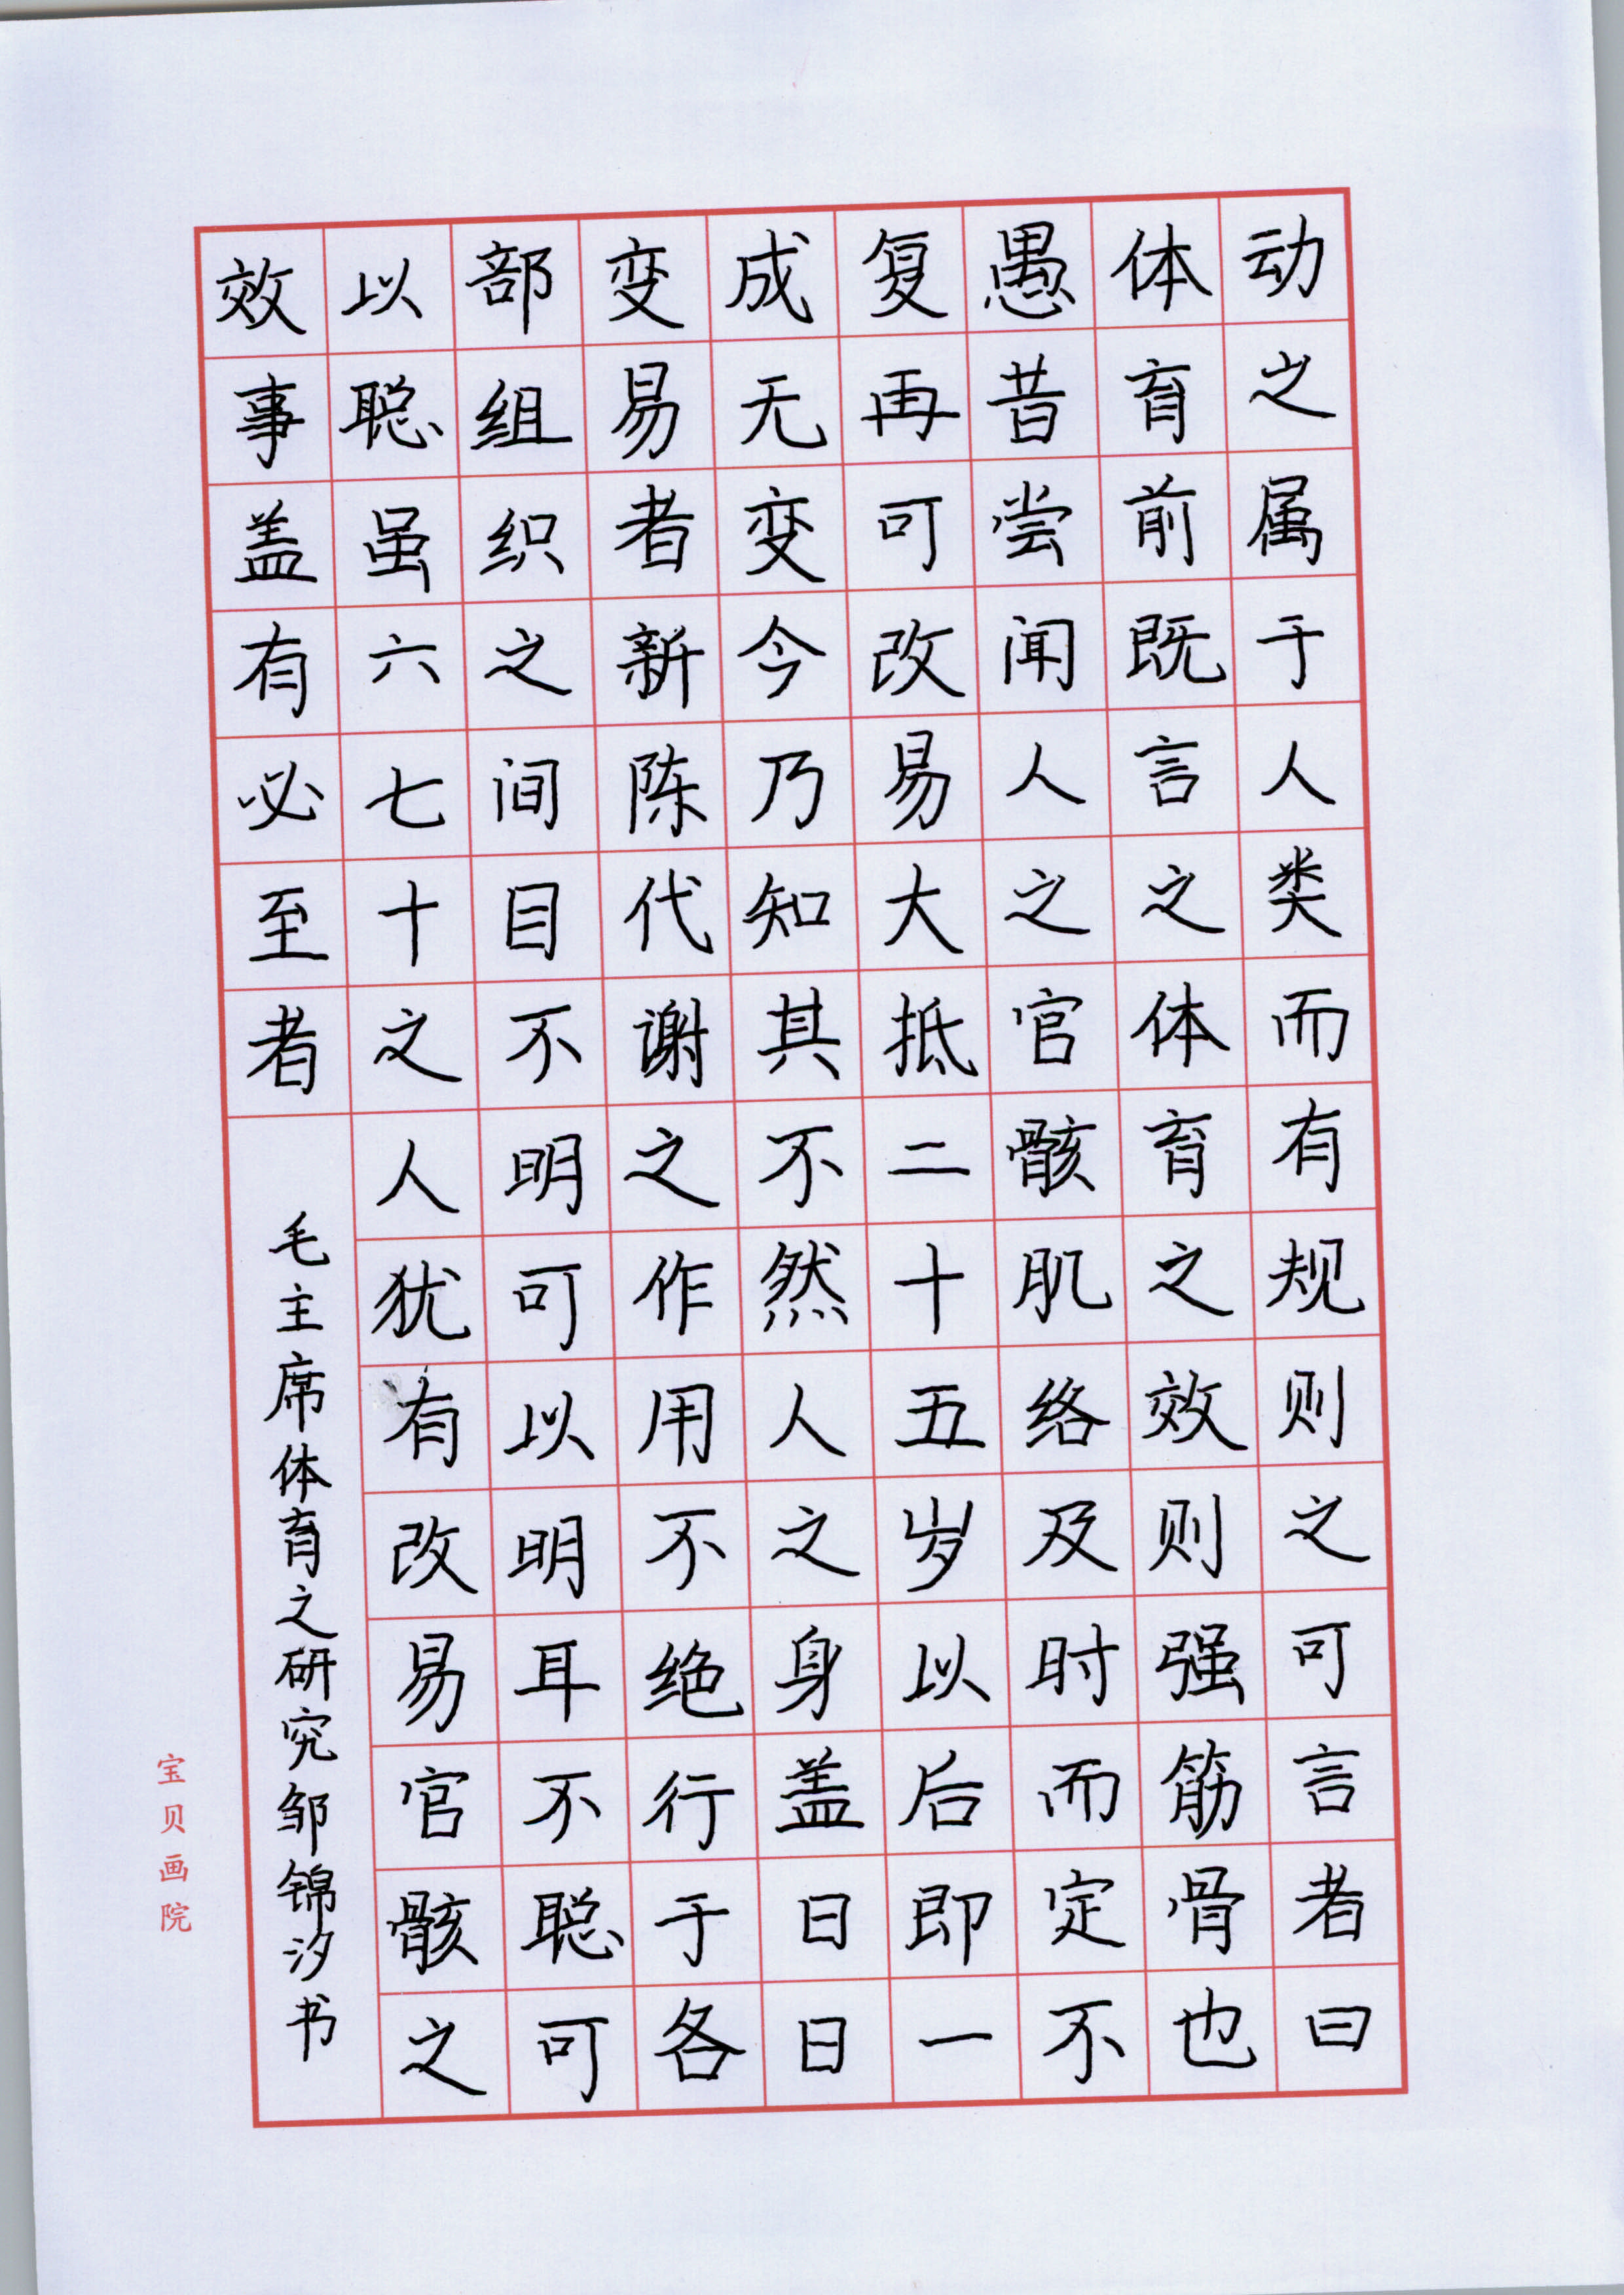 动之属于人类而有规则之可言者曰
体育前既言之体育之效则强筋骨也
愚昔尝闻人之官骸肌络及时而定不
复再可改易大抵二十五岁以后即一
成无变今乃知其不然人之身盖日日
变易者新陈代谢之作用不绝行于各
部组织之间目不明可以明耳不聪可
以聪虽六七十之人犹有改易官骸之
效事盖有必至者
毛主席体育之研究邹锦汐书
宝贝画院